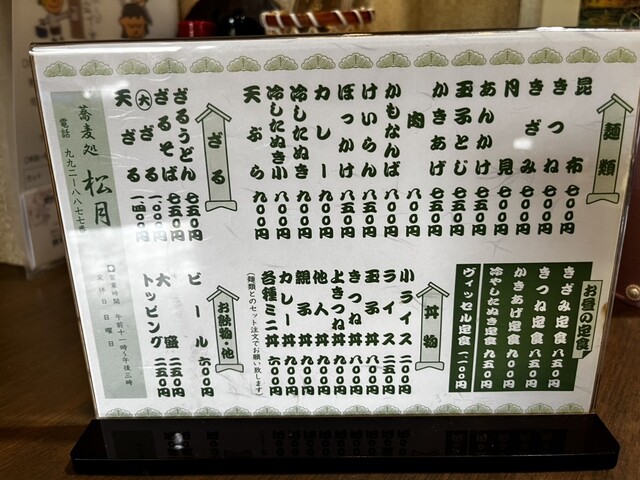 麺類
昆布 七〇〇円
きつね 七〇〇円
きざみ 七〇〇円
月見 七〇〇円
あんかけ 七五〇円
玉子とじ 七五〇円
かきあげ 七五〇円
肉 八〇〇円
かもなんば 八五〇円
けいらん 八五〇円
ぼっかけ 八五〇円
カレー 九〇〇円
冷したぬき 八〇〇円
冷したぬき小 八〇〇円
天ぷら 九〇〇円
ざる
ざるうどん 七五〇円
ざるそば 七五〇円
大ざる 一、〇〇〇円
天ざる 一、四〇〇円
蕎麦処 松月
電話 九九二ー八八七七番
お昼の定食
きざみ定食 八五〇円
きつね定食 八五〇円
かきあげ定食 九〇〇円
冷やしたぬき定食 九五〇円
ヴィッセル定食 一、一〇〇円
丼物
小ライス 二〇〇円
ライス 二五〇円
玉子丼 八〇〇円
きつね丼 八〇〇円
よきつね丼 八五〇円
他人丼 九五〇円
親子丼 九五〇円
カレー丼 九〇〇円
各種ミニ丼 六〇〇円
(麺類とのセット注文でお願い致します)
お飲物・他
ビール 六〇〇円
大盛 二五〇円
トッピング 二五〇円
営業時間 午前十一時〜午後三時
定休日 日曜日